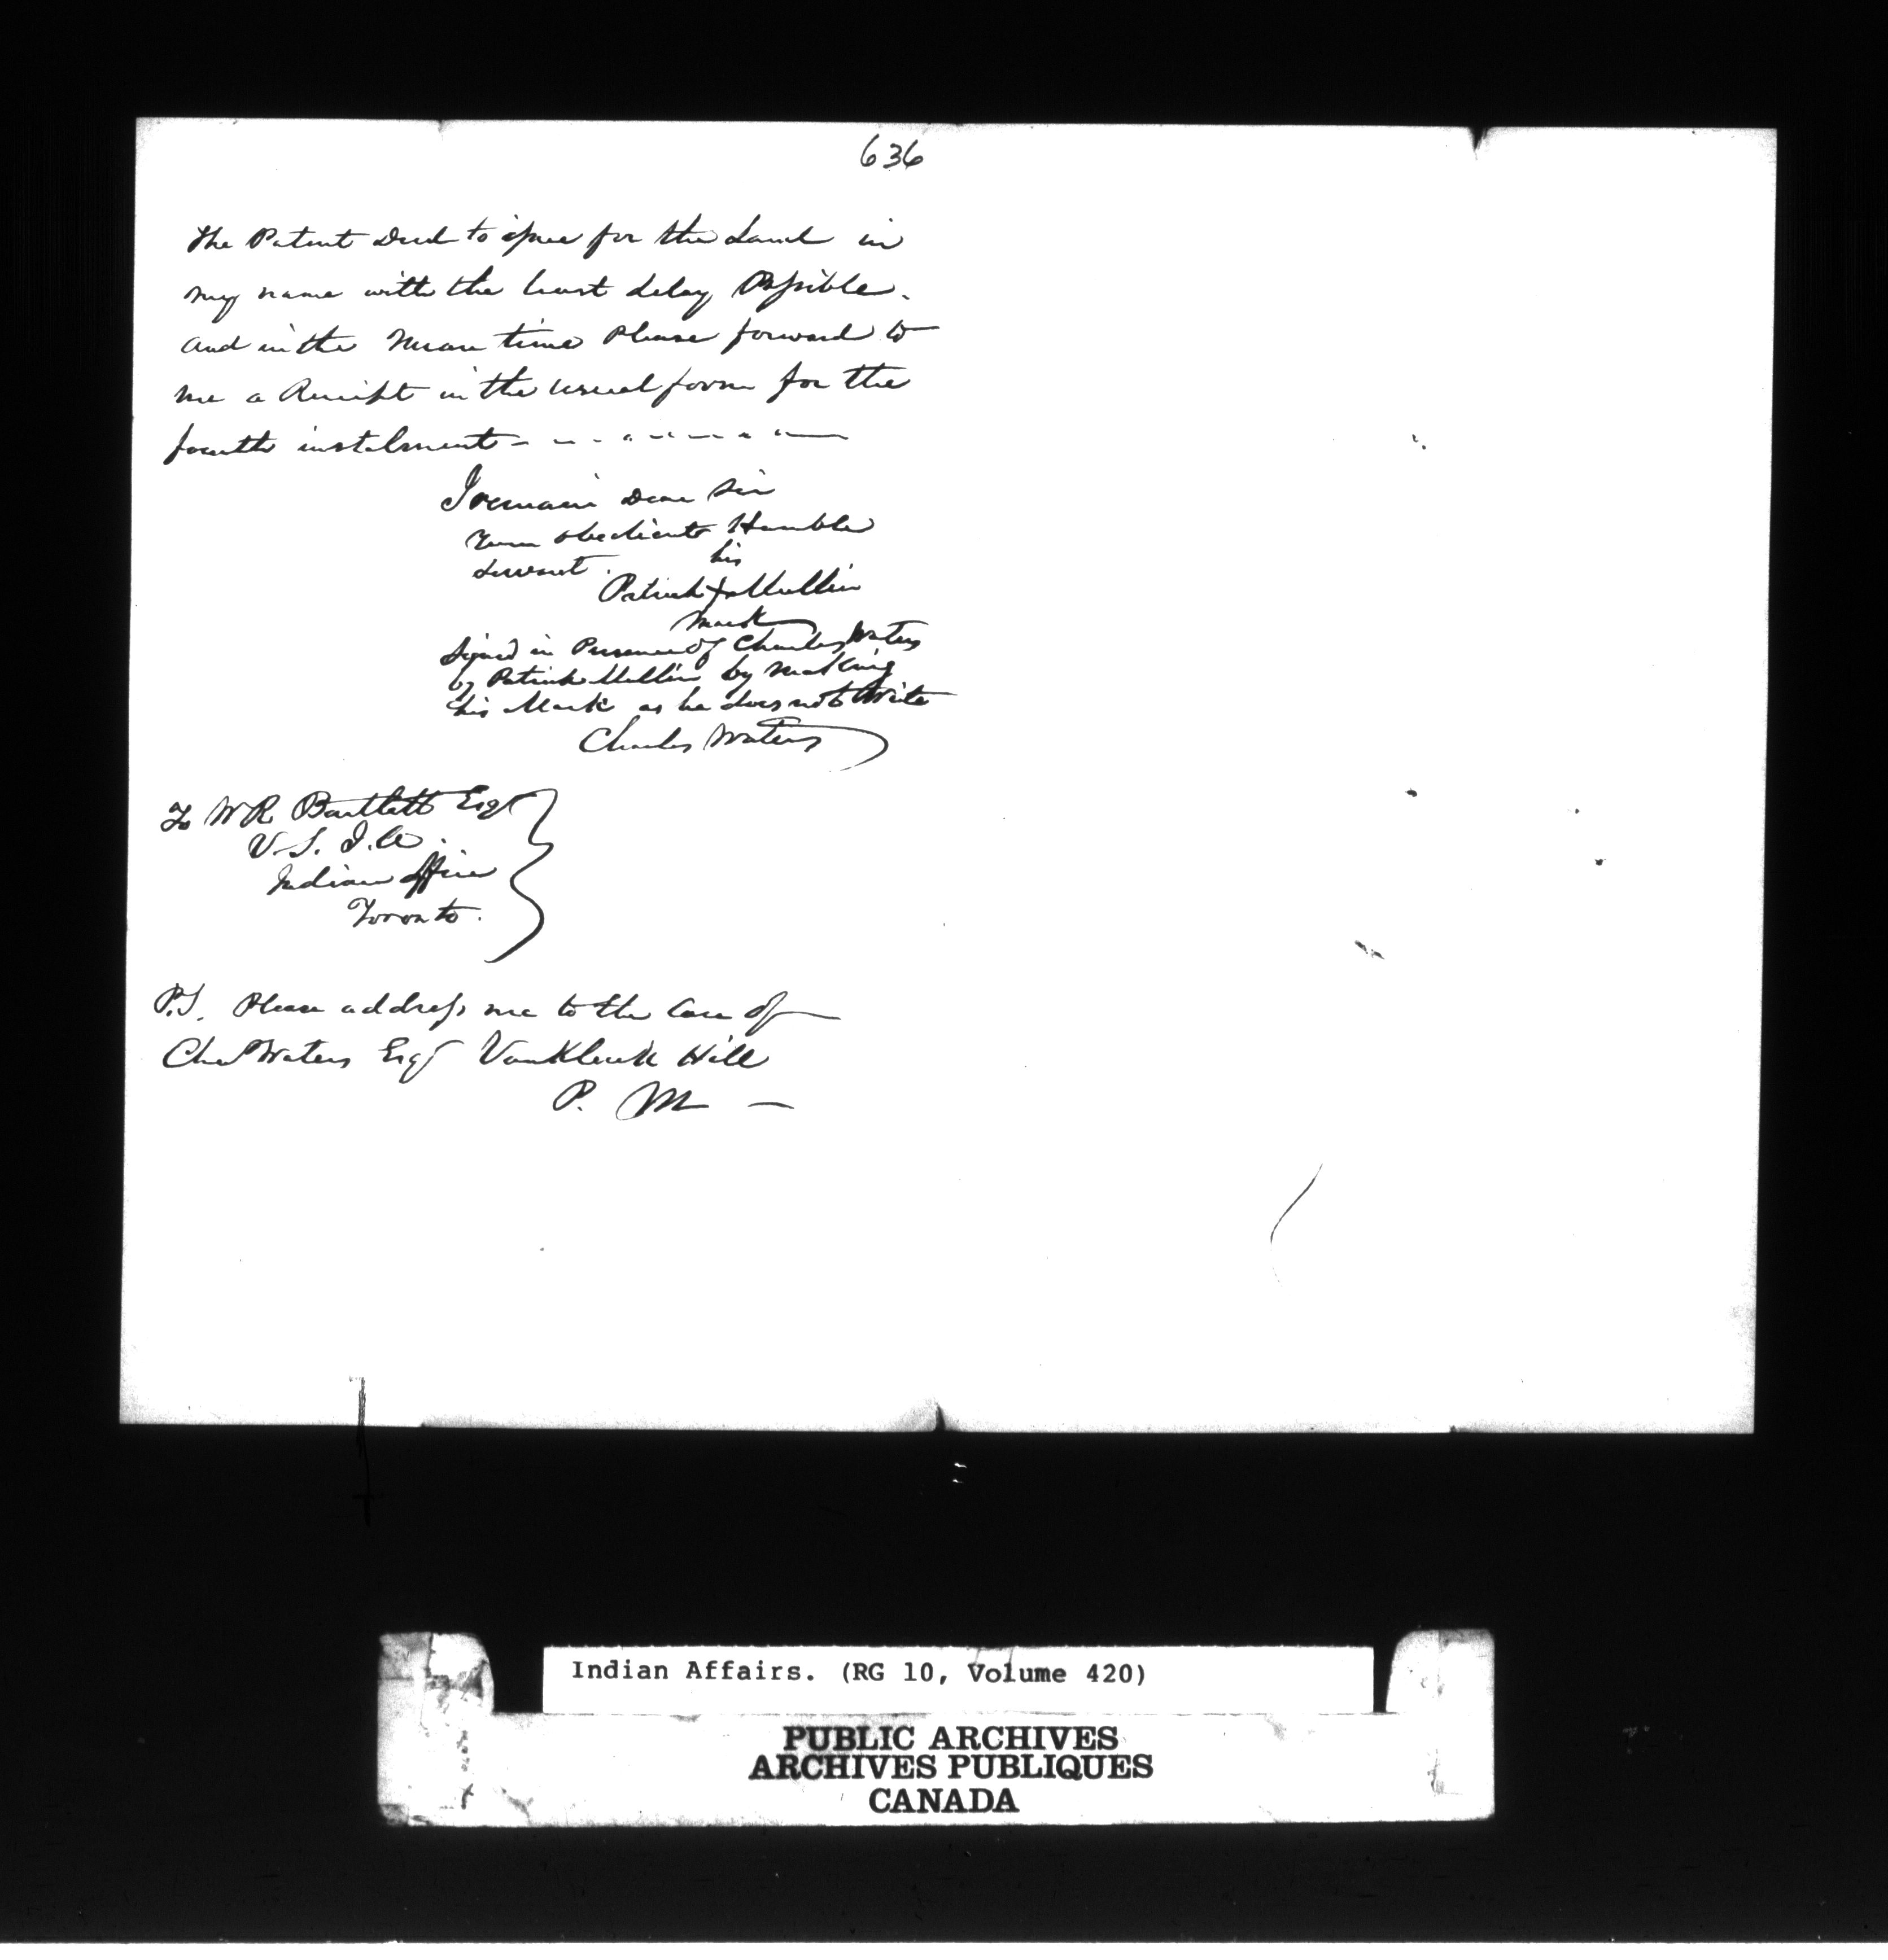 636
The Patent Deed to issue for the Land in
my name with the least delay Possible.
and in the Mean time Please forward to
me a Receipt in the usual form for the
fourth instalment - - - - - - - - -
I remain Dear Sir
Your obedient Humble
Servant.
his
Patrick X Mullin
Mark
Signed in Presence of Charles Waters
by Patrick Mullin by making
his Mark as he does not Write
Charles Waters
To W R Bartlett Esqr
V. S. I. A.
Indian Office
Toronto.
P.S. Please address me to the Care of
Chas Waters Esqr VanKleek Hill
P. M —
Indian Affairs. (RG 10, Volume 420)
PUBLIC ARCHIVES
ARCHIVES PUBLIQUES
CANADA